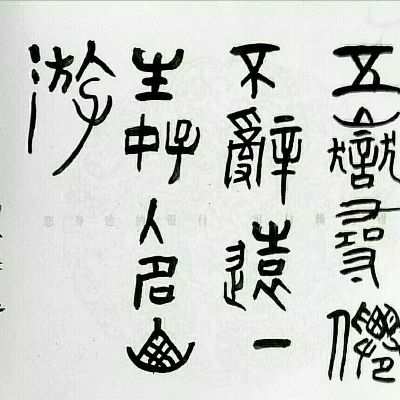 五嶽尋僊
不辭遠一
生好入名山
游